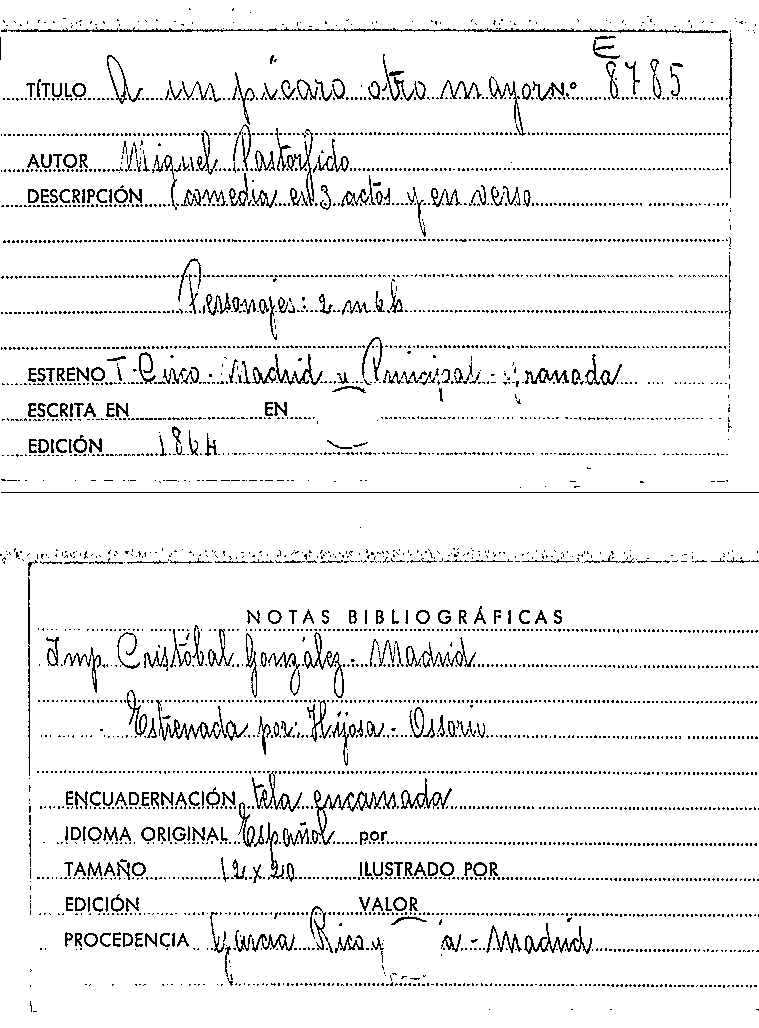 E
TÍTULO A un pícaro otro mayor N.º 8785
AUTOR Miguel Pastorfido
DESCRIPCIÓN Comedia en 3 actos y en verso
Personajes: 2 m 6 h
ESTRENO T. Circo - Madrid y Principal - Granada
ESCRITA EN EN
EDICIÓN 1864
NOTAS BIBLIOGRÁFICAS
Imp. Cristóbal González - Madrid
Estrenada por: Hijosa - Ossorio
ENCUADERNACIÓN tela encarnada
IDIOMA ORIGINAL Español por
TAMAÑO 12 x 20 ILUSTRADO POR
EDICIÓN VALOR
PROCEDENCIA García Rico y a - Madrid